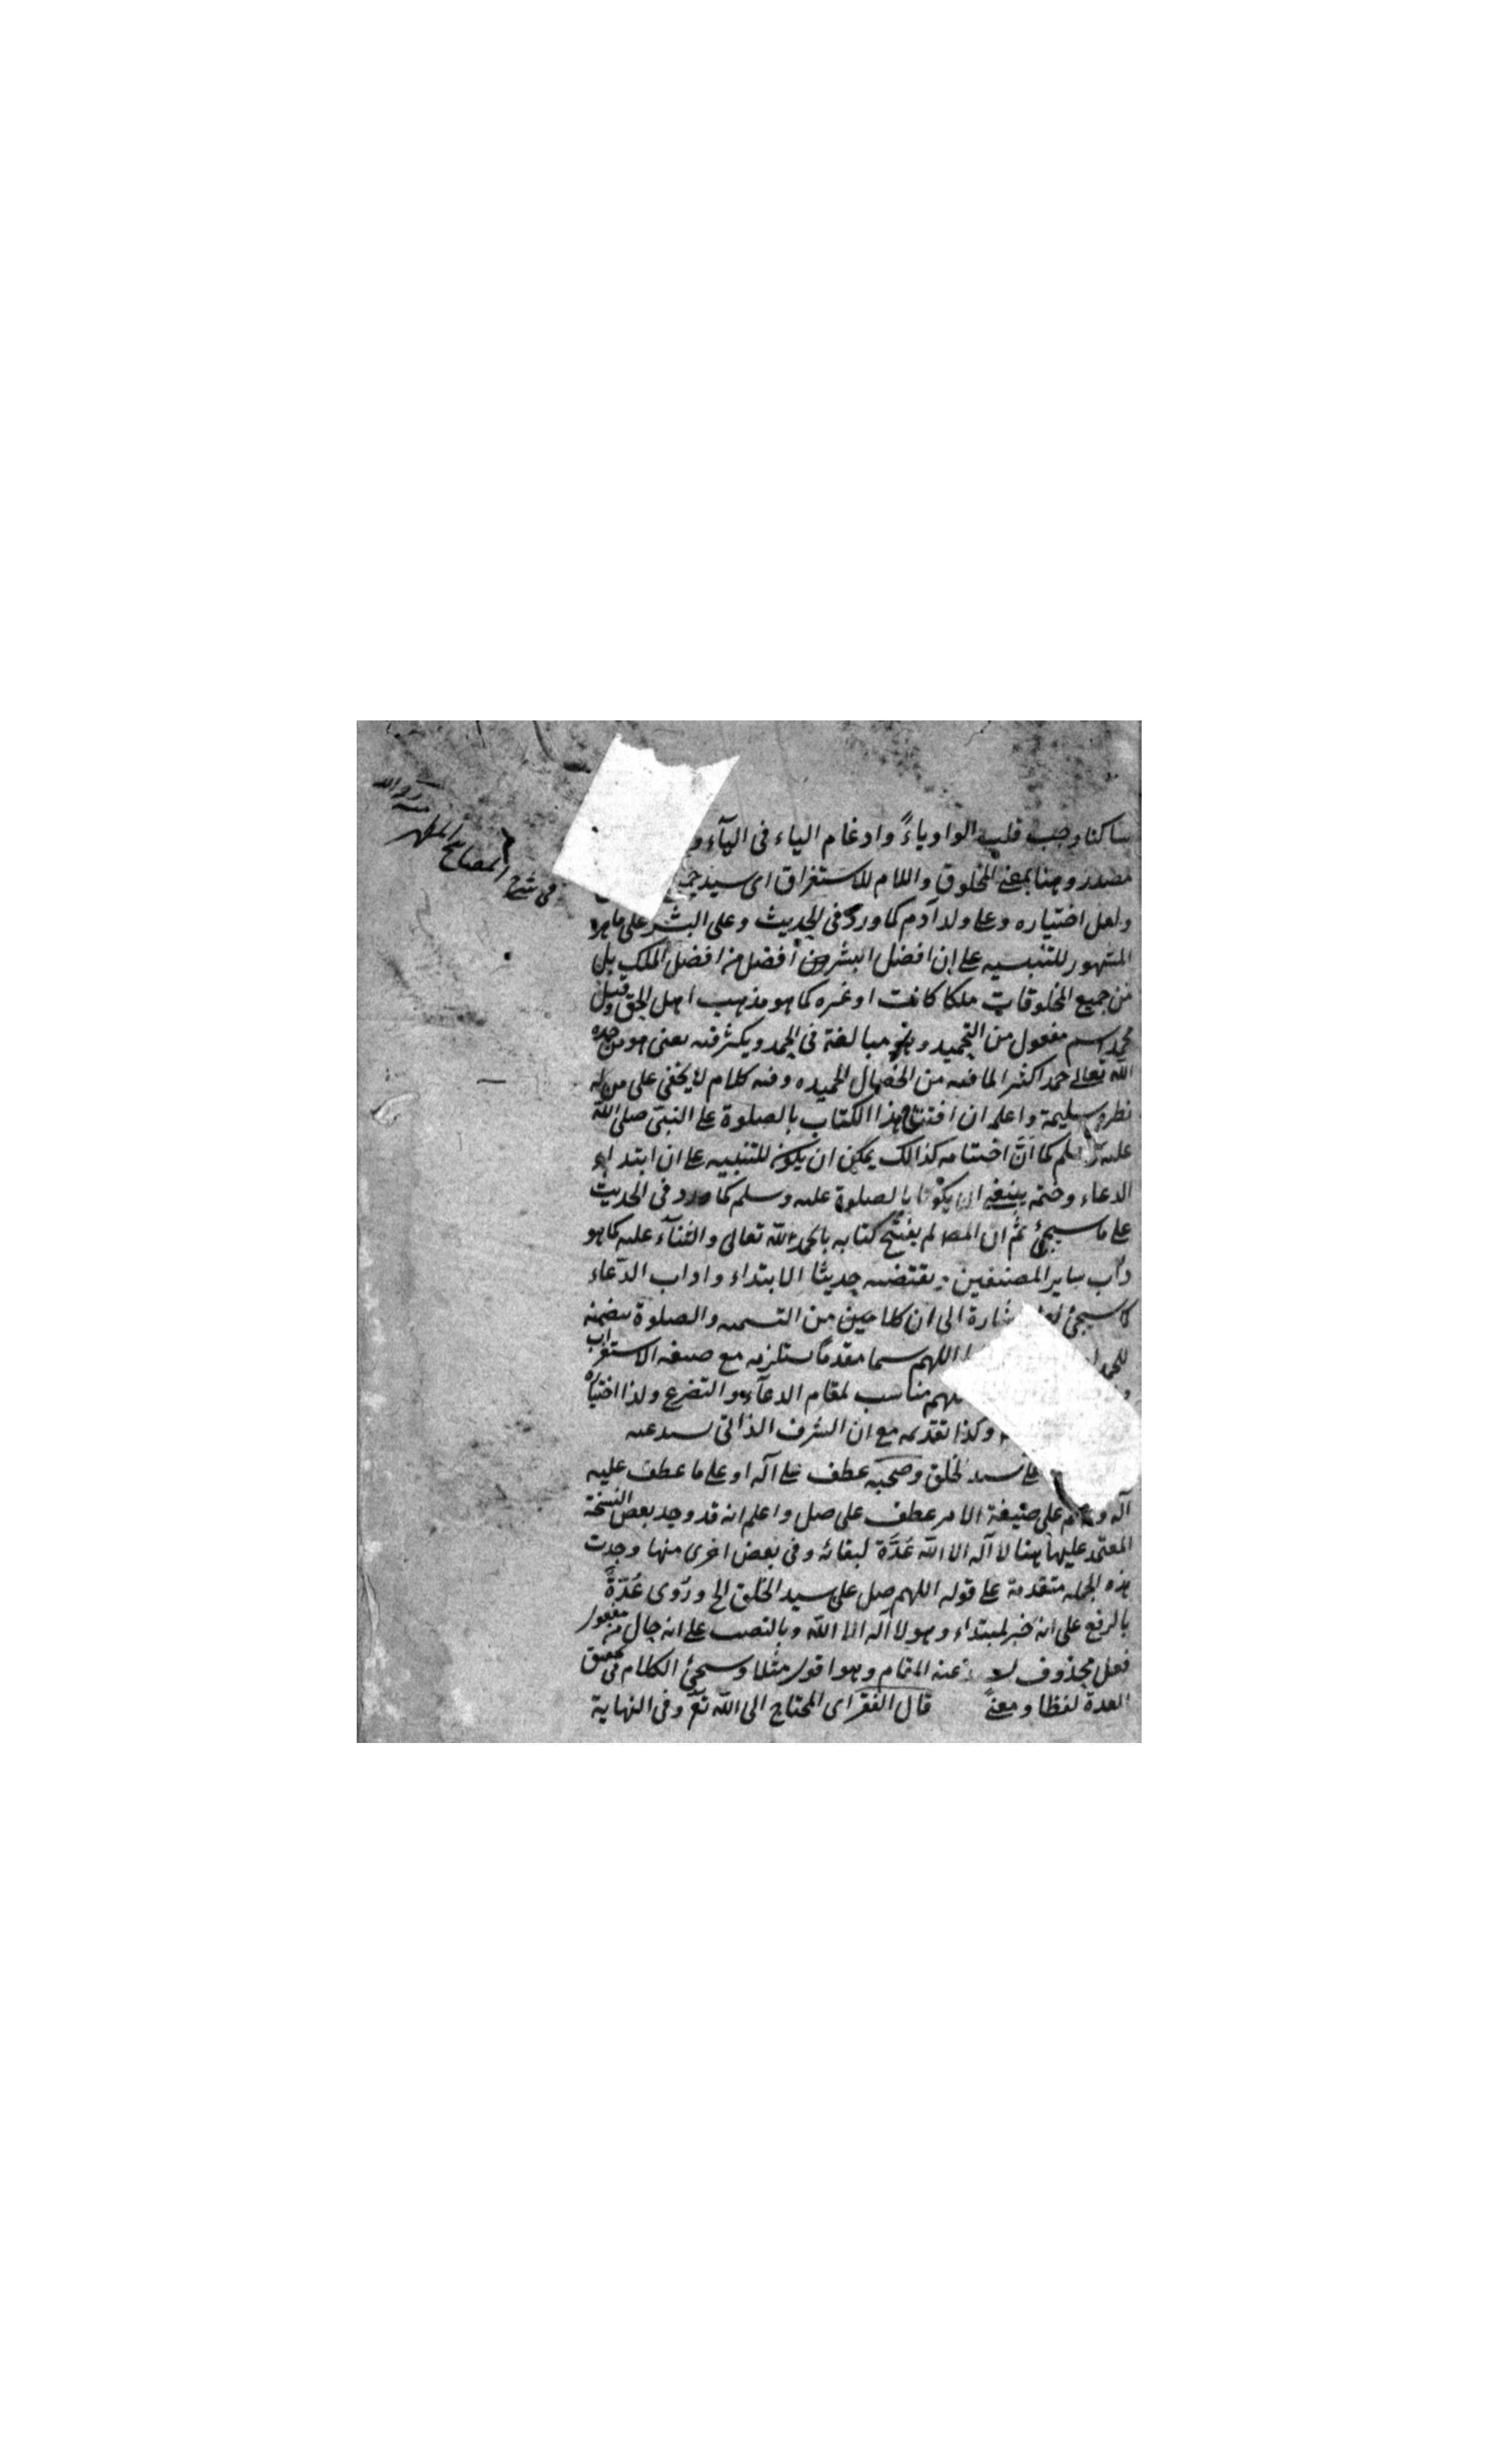 ساكنا وجب قلب الواو ياءً وادغام الياء فى اليآء و
مصدر وهنا بمعنے المخلوق واللام للاستغراق اى سيد جميع
ولعل اختياره وعلے ولد آدم كما ورد فى الحديث وعلى البشر على ما هو
المشهور للتنبيه علے ان افضل البشر من افضل الملك بل
من جميع المخلوقات ملكا كانت او غيره كما هو مذهب اهل الحق وقيل
محمد اسم مفعول من التحميد وهو مبالغة فى الحمد ويكثر فيه يعنى هو من حمده
الله تعالے حمدا كثيرا لما فيه من الخصال الحميده وفيه كلام لا يخفى على من له
نظر سليمة واعلم ان افتتاح هذا الكتاب بالصلوة علے النبىّ صلى الله
عليه وسلم كما انَّ اختتامه كذالك يمكن ان يكون للتنبيه علے ان ابتداء
الدعاء وختمه ينبغے ان يكونا بالصلوة عليه وسلم كما ورد فى الحديث
علے ما سيجئ ثم ان المصـ لم يفتتح كتابه بالحمد لله تعالى والثناء عليه كما هو
داب ساير المصنفين يقتضيه حديثا الابتداء واداب الدّعاء
كما سيجئ اشارة الى ان كلا من التسميه والصلوة يتضمنه
للحمد اللهم سما مقدما يستلزمه مع صيغه الاستغراب
اللهم مناسب لمقام الدعآء والتضرع ولذا اختياره
وكذا تقديمه مع ان الشرف الذاتى يستدعيه
علے سيد الخلق وصحبه عطف علے آله او علے ما عطف عليه
آله وسلم على صيغة الامر عطف على صل واعلم انه قد وجد بعض النسخة
المعتمد عليها هنا لا آله الا الله عُدَّة لبقائه وفى بعض اخرى منها وجدت
هذه الجمله متقدمة علے قوله اللهم صل على سيد الخلق الخ ورُوى عُدّةً
بالرفع على انه خبر لمبتداء وهو لا آله الا الله وبالنصب علے انه حال من مفعول
فعل محذوف عنه المقام وهو اقول مثلا وسيجئ الكلام فى تحقيق
العدة لفظا ومعنےً قال الفقير اى المحتاج الى الله تع وفى النهاية
فى شرح
المصابح